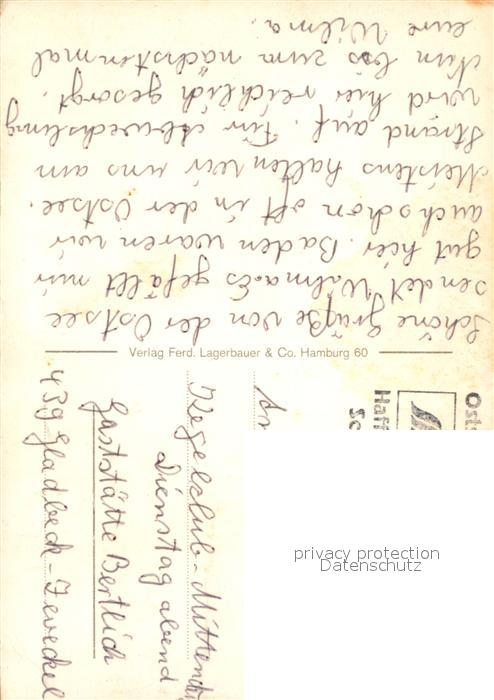 Schöne Grüße von der Ostsee
sendet Wilma. Es gefällt mir
gut hier. Baden waren wir
auch schon oft in der Ostsee.
Meistens halten wir uns am
Strand auf. Für Abwechslung
wird hier reichlich gesorgt.
Nun bis zum nächstenmal
eure Wilma.
Verlag Ferd. Lagerbauer & Co. Hamburg 60
An
Kegelclub-Mitten
Dienstag abend
Gaststätte Bertlich
439 Gladbeck-Zweckel
Osts
Haff
Sc
privacy protection
Datenschutz